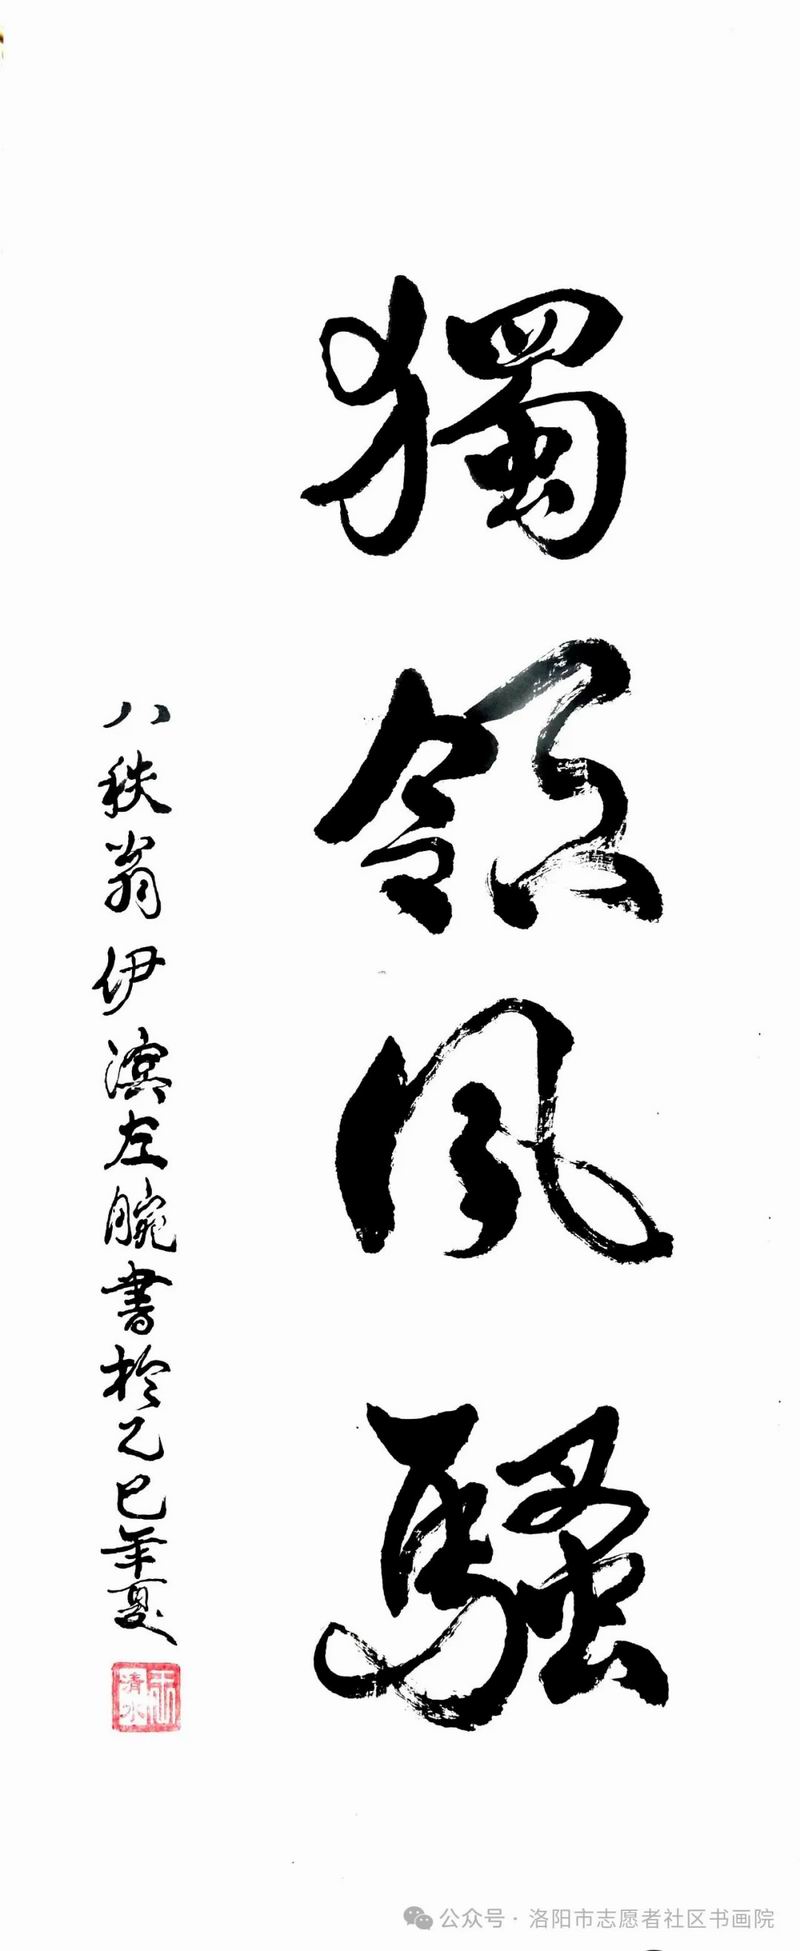 獨領風騷
八秩翁伊濱左腕書於乙巳年夏
清水
公众号·洛阳市志愿者社区书画院